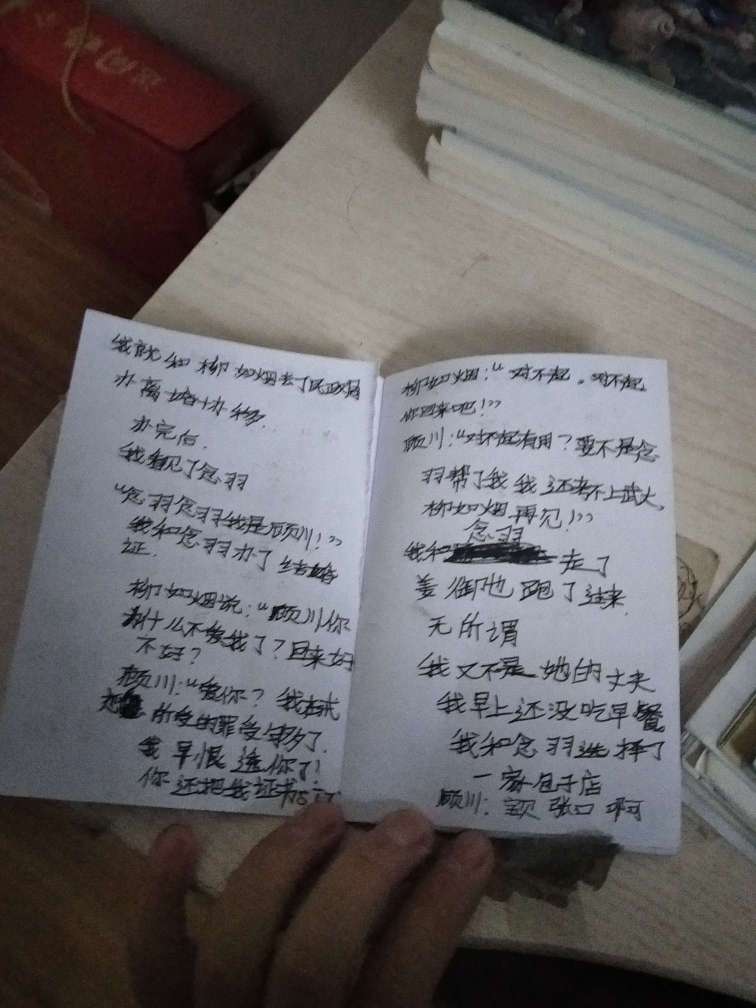 我就和柳如烟去了民政局
办离婚协移.
办完后.
我看见了念羽
“念羽念羽我是顾川！”
我和念羽办了结婚
证.
柳如烟说：“顾川你
为什么不爱我了？回来好
不好？
顾川：“爱你？我
所受的罪受够了.
我早恨透你了！
你还把我证书
柳如烟：“对不起。对不起
你回来吧！”
顾川：“对不起有用？要不是念
羽帮了我我还考不上武大。
柳如烟再见！”
念羽
我和 走了
姜御也跑了过来
无所谓
我又不是她的丈夫
我早上还没吃早餐
我和念羽选择了
一家包子店
顾川：宝贝张口啊